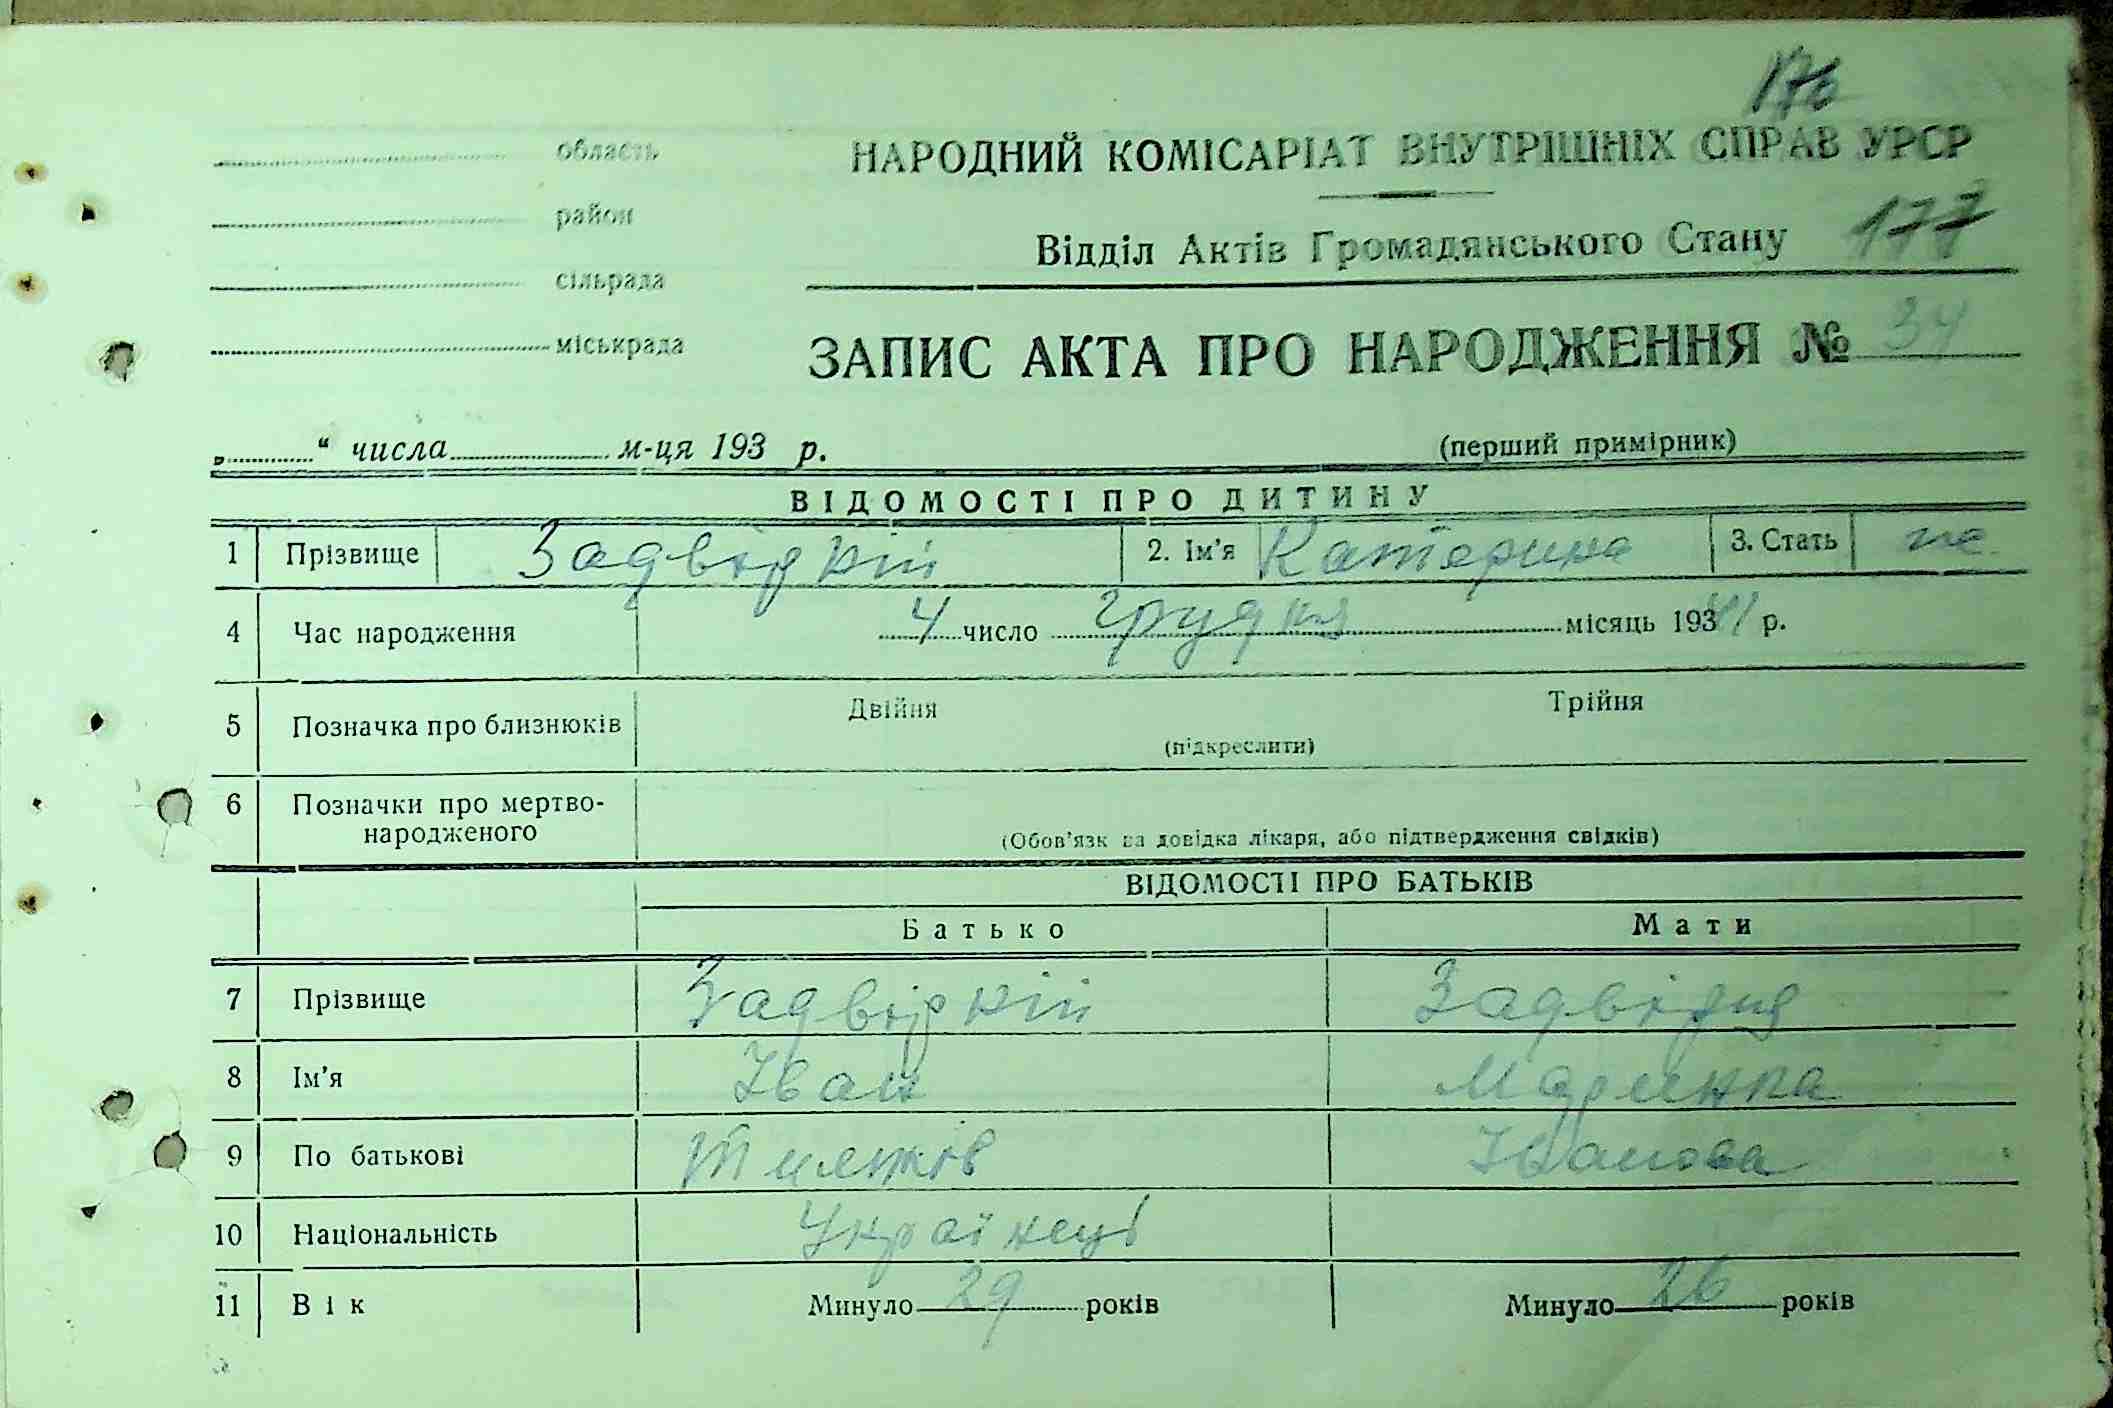 176
область НАРОДНИЙ КОМІСАРІАТ ВНУТРІШНІХ СПРАВ УРСР
район
Відділ Актів Громадянського Стану 177
сільрада
міськрада ЗАПИС АКТА ПРО НАРОДЖЕННЯ № 34
„ “ числа м-ця 193 р. (перший примірник)
ВІДОМОСТІ ПРО ДИТИНУ
1 Прізвище Задвірній 2. Ім'я Катерина 3. Стать
4 Час народження 4 число грудня місяць 1941 р.
5 Позначка про близнюків Двійня Трійня
(підкреслити)
6 Позначки про мертво-
народженого (Обов'язкова довідка лікаря, або підтвердження свідків)
ВІДОМОСТІ ПРО БАТЬКІВ
Батько Мати
7 Прізвище Задвірній Задвірня
8 Ім'я Іван Маринка
9 По батькові Іванова
10 Національність Українець
11 Вік Минуло 29 років Минуло 26 років